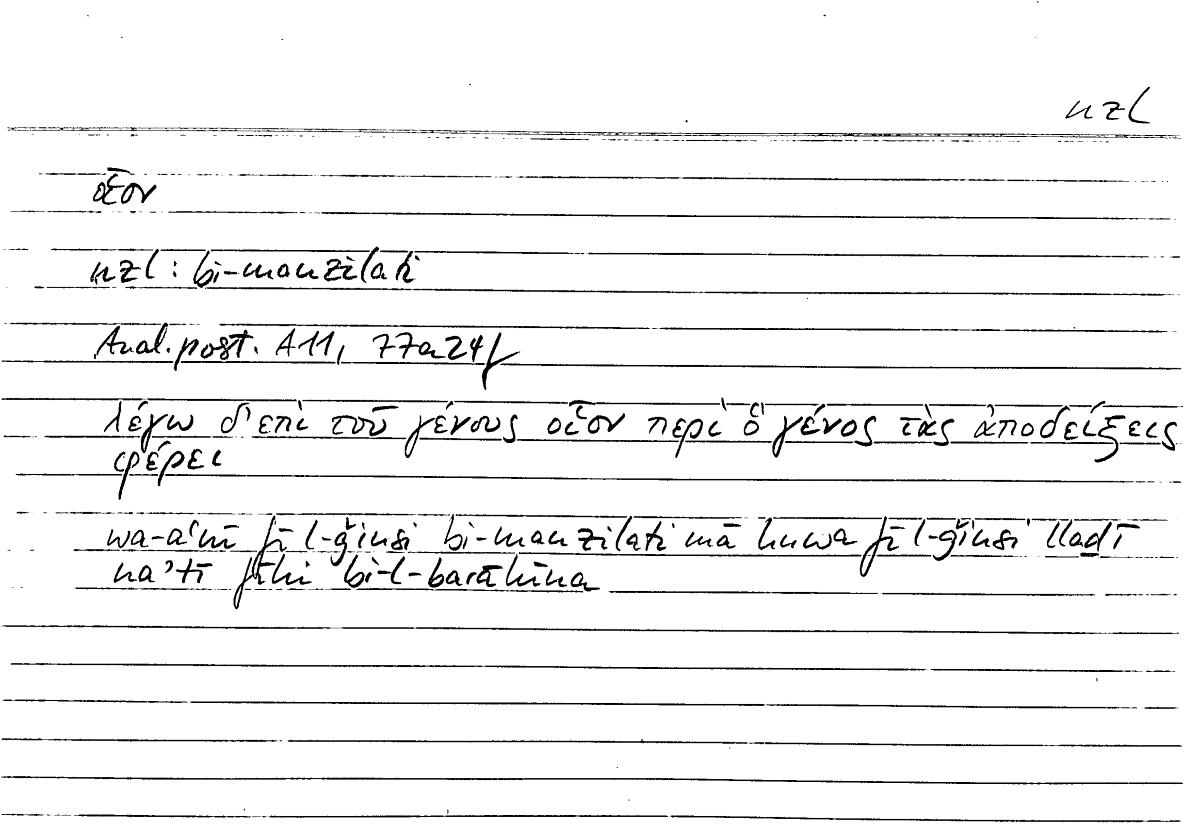 nzl
οἷον
nzl : bi-manzilati
Anal. post. A11, 77a24f
λέγω δ' ἐπὶ τοῦ γένους οἷον περὶ ὃ γένος τὰς ἀποδείξεις
φέρει
wa-aʿnī fī l-ǧinsi bi-manzilati mā huwa fī l-ǧinsi lladī
naʾtī fīhi bi-l-barāhīna